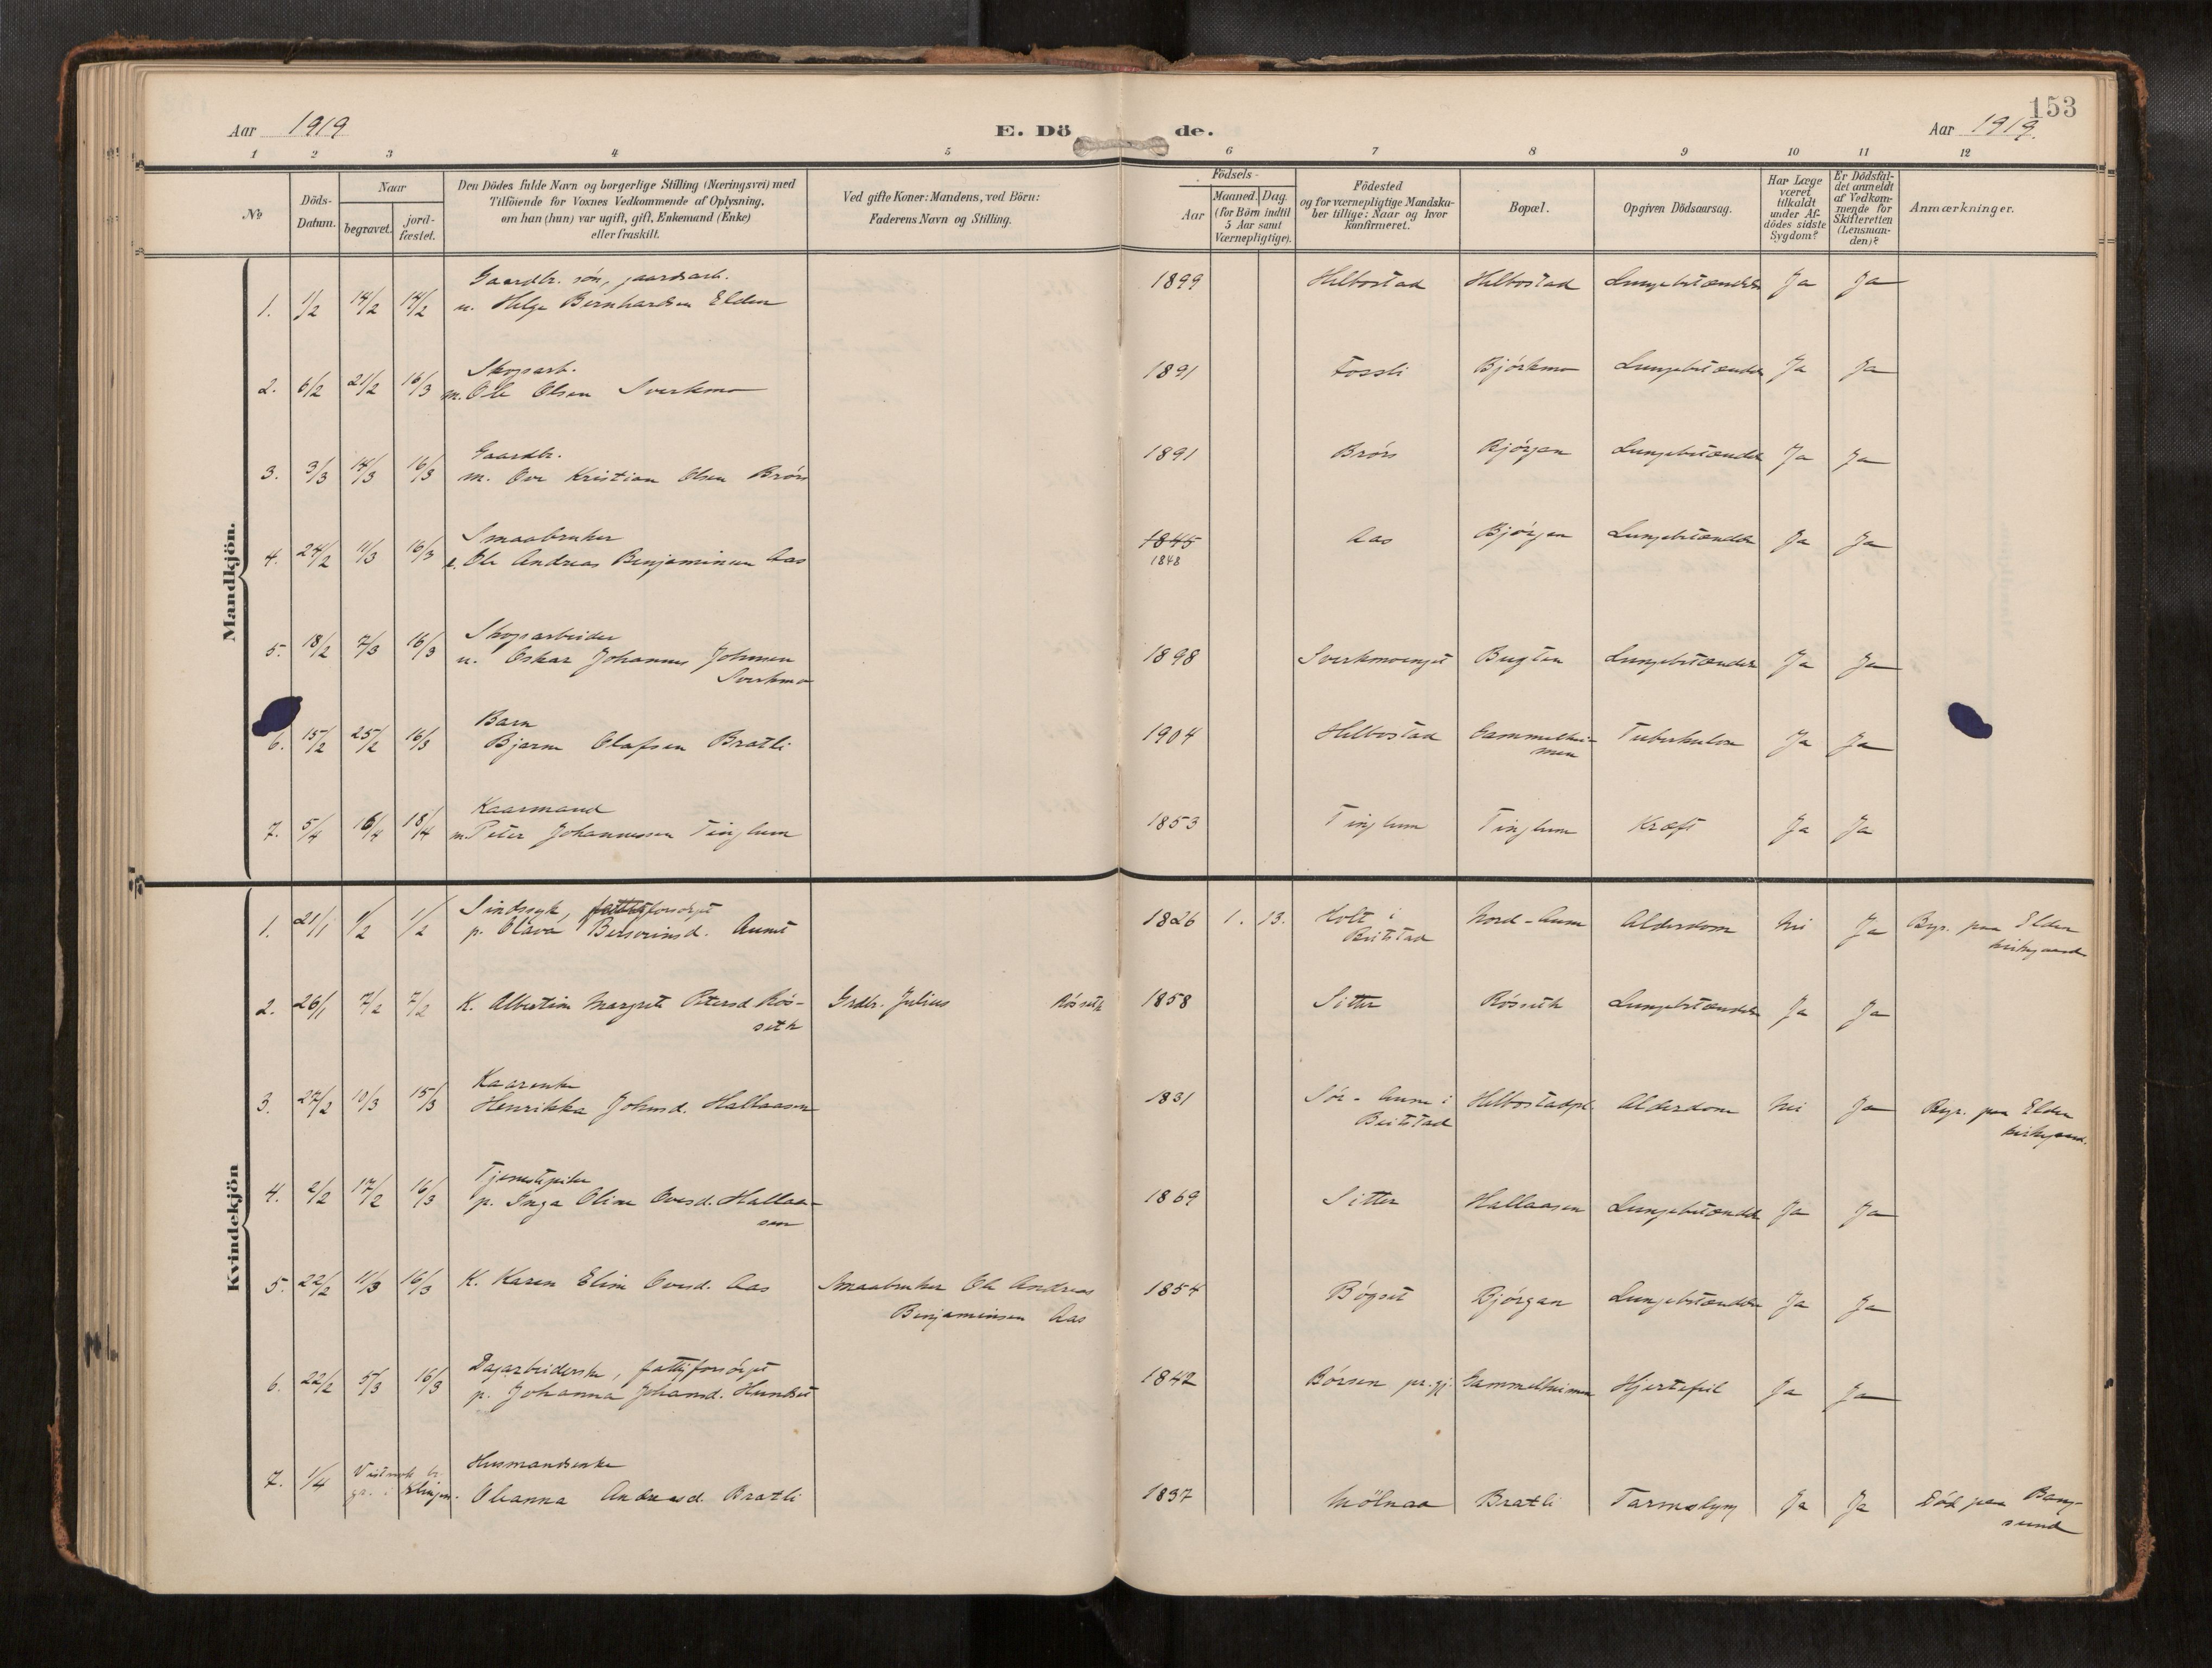 153
Aar 1919
E. Dö de.
Aar 1919.
1 2 3 4 5 6 7 8 9 10 11 12
No
Döds-Datum.
Naar
begravet.
jord-fæstet.
Den Dödes fulde Navn og borgerlige Stilling (Næringsvei) med
Tilföiende for Voxnes Vedkommende af Oplysning,
om han (hun) var ugift, gift, Enkemand (Enke)
eller fraskilt.
Ved gifte Koner: Mandens, ved Börn:
Faderens Navn og Stilling.
Födsels-
Aar
Maaned. Dag.
(for Börn indtil
5 Aar samt
Værnepligtige).
Födested
og for værnepligtige Mandska-
ber tillige: Naar og hvor
konfirmeret.
Bopæl.
Opgiven Dödsaarsag.
Har Læge
været
tilkaldt
under Af-
dödes sidste
Sygdom?
Er Dödsfal-
det anmeldt
af Vedkom-
mende for
Skifteretten
(Lensman-
den)?
Anmærkninger.
Mandkjön.
Gaardbr. søn, gaardsarb.
1. 1/2 14/2 14/2 u. Helge Bernhardsen Elden 1899 Helbostad Helbostad Lungebetændelse Ja Ja
Skogsarb.
2. 6/2 21/2 16/3 m. Ole Olsen Sverkmo 1891 Fossli Bjørkmo Lungebetændelse Ja Ja
Gaardbr.
3. 3/3 14/3 16/3 m. Ove Kristian Olsen Brørs 1891 Brørs Bjørgan Lungebetændelse Ja Ja
Smaabruker
4. 24/2 11/3 16/3 e. Ole Andreas Benjaminsen Aas 1845 Aas Bjørgan Lungebetændelse Ja Ja
1848
Skogsarbeider
5. 18/2 7/3 16/3 u. Oskar Johannes Johnsen 1898 Sverkmoenget Bugten Lungebetændelse Ja Ja
Sverkmo
Barn
6. 15/2 25/2 16/3 Bjarne Olafsen Bratli 1904 Helbostad Gammelhei- Tuberkulose Ja Ja
men
Kaarmand
7. 5/4 16/4 18/4 m. Peter Johannessen Tinglum 1853 Tinglum Tinglum Kræft Ja Ja
Kvindekjön
Sindssyk, fattigforsørget
1. 21/1 1/2 1/2 p. Olava Bersvensd. Aunet 1826 1. 13. Holt i Nord-Aun Alderdom Nei Ja Begr. paa Elden
Beitstad kirkegaard
2. 26/1 7/2 7/2 K. Albertine Margrete Petersd. Røs- Grdbr. Julius Røsseth 1858 Sitter Røsseth Lungebetændelse Ja Ja
seth
Kaarenke
3. 27/2 10/3 15/3 Henrikka Johnsd. Hallaasen 1831 Sør-Aune i Helbostadpl. Alderdom Nei Ja Begr. paa Elden
Beitstad kirkegaard.
Tjenestepike
4. 2/2 17/2 16/3 p. Inga Oline Ovesd. Hallaa- 1869 Sitter Hallaasen Lungebetændelse Ja Ja
sen
5. 22/2 11/3 16/3 K. Karen Eline Ovesd. Aas Smaabruker Ole Andreas 1854 Bøgset Bjørgan Lungebetændelse Ja Ja
Benjaminsen Aas
Dagarbeiderske, fattigforsørget
6. 22/2 5/3 16/3 p. Johanna Johansd. Hundset 1842 Børsen pr.gj. Gammelheimen Hjertefeil Ja Ja
Husmandsenke
7. 1/4 Vistnok be- gr. i Klingen. Oleanna Andreasd. Bratli 1837 Mölnaa Bratli Tarmslyng Ja Ja Død paa Bang-
sund